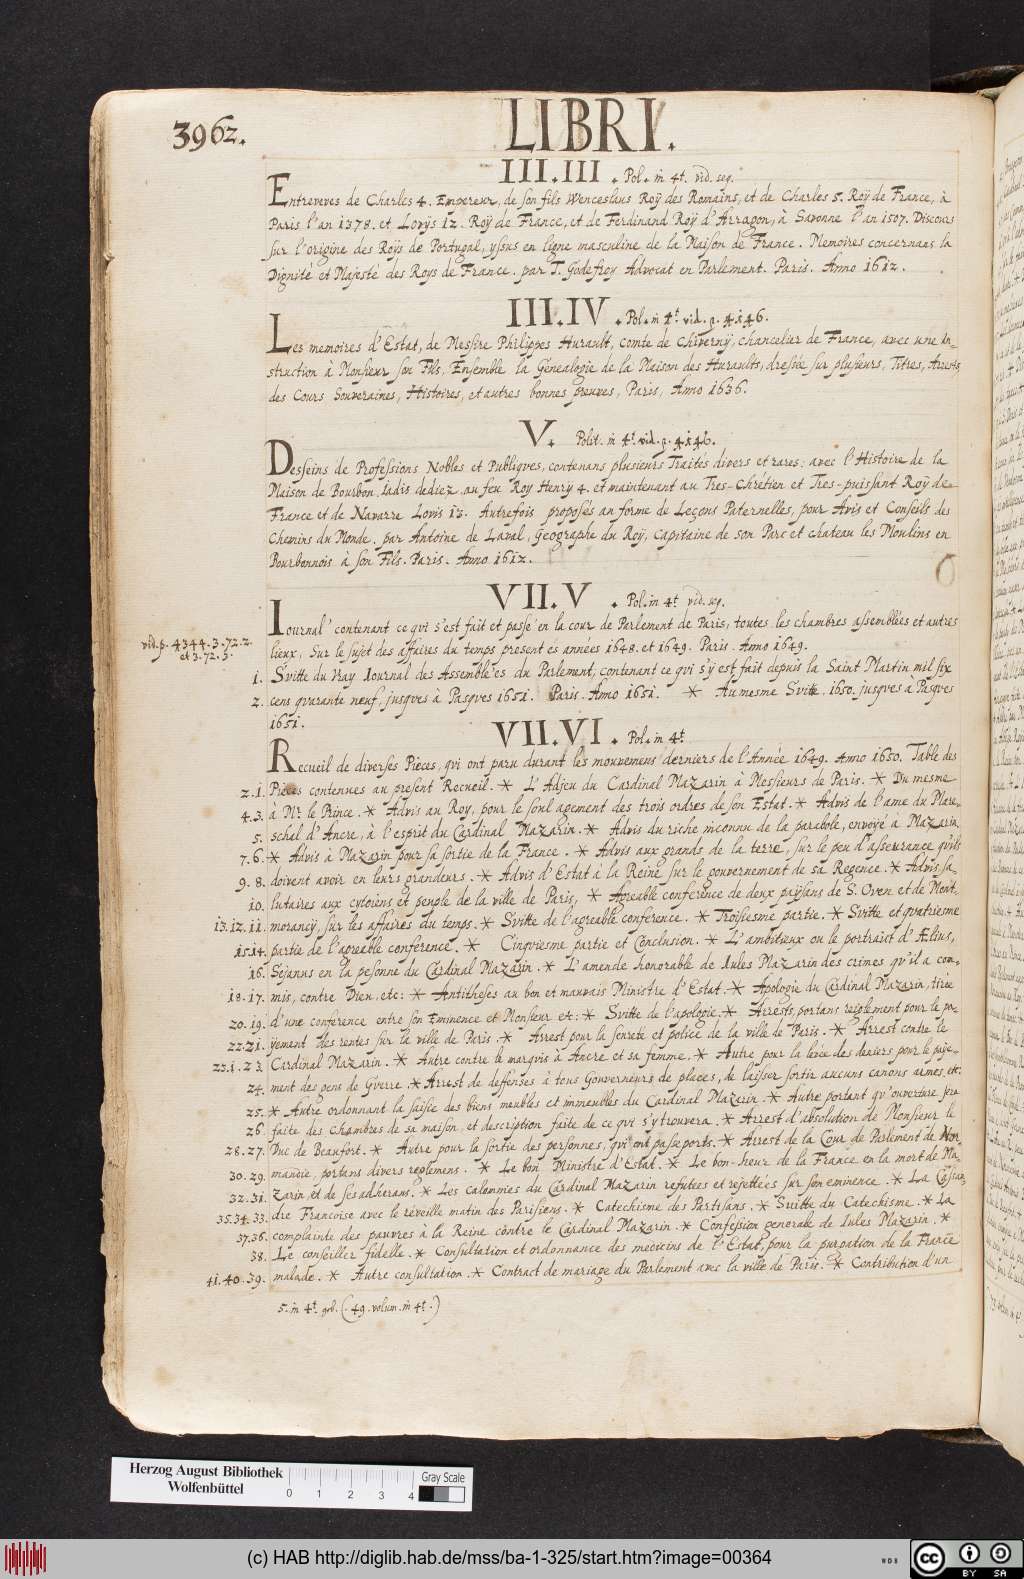 3962.
LIBRI.
III.III . Pol. in 4t. vid. seq.
Entreveves de Charles 4. Empereur, de son fils Wenceslaus Roÿ des Romains, et de Charles 5. Roÿ de France, à
Paris l'an 1378. et Lovÿs 12. Roÿ de France, et de Ferdinand Roÿ d'Arragon, à Savonne l'an 1507. Discours
sur l'origine des Roÿs de Portugal, yssus en ligne masculine de la Maison de France. Memoires concernans la
Dignité et Majesté des Roys de France. par T. Godefroy Advocat en Parlement. Paris. Anno 1612.
III.IV . Pol. in 4t. vid. p. 4146.
Les memoires d'Estat, de Messire Philippes Hurault, comte de Chivernÿ, chancelier de France, avec une in-
struction à Monsieur son Fils. Ensemble la Genealogie de la Maison des Huraults, dresée sur plusieurs, Titres, Arrests
des Cours Souveraines, Histoires, et autres bonnes preuves, Paris, Anno 1636.
V. Polit. in 4t. vid. p. 4146.
Desseins de Professions Nobles et Publiqves, contenans plusieurs Traités divers et rares: avec l'Histoire de la
Maison de Bourbon, Jadis dediez au feu Roy Henry 4. et maintenant au Tres-Chrétien et Tres-puissant Roÿ de
France et de Navarre Lovis 13. Autrefois proposés an forme de Leçons Paternelles, pour Avis et Conseils des
Chemins du Monde. par Antoine de Laval, Geographe du Roÿ, Capitaine de son Parc et chateau les Moulins en
Bourbonnois à son Fils. Paris. Anno 1612.
VII.V . Pol. in 4t vid. seq.
Iournal contenant ce qvi s'est fait et passé en la cour de Parlement de Paris, toutes les chambres assemblées et autres
vid. p. 4344. 3. 72. 2.
et 3. 72. 3.
lieux, Sur le sujet des affaires du temps present es années 1648. et 1649. Paris. Anno 1649.
1. Svitte du Vray Iournal des Assemblées du Parlement, contenant ce qvi s'ÿ est fait depuis la Saint Martin mil six
2. cens qvarante neuf, jusqves à Pasqves 1651. Paris. Anno 1651. * Au mesme Svitte. 1650. jusqves à Pasqves
1651.
VII.VI . Pol. in 4t.
Recueil de diverses Pieces, qvi ont paru durant les mouvemens derniers de l'Année 1649. Anno 1650. Table des
2.1. Pieces contenues au present Recueil. * L'Adjeu du Cardinal Mazarin à Messieurs de Paris. * Du mesme
4.3. à Mr. le Prince. * Advis au Roy, pour le soulagement des trois ordres de son Estat. * Advis de l'ame du Mare-
5. schal d'Ancre, à l'esprit du Cardinal Mazarin. * Advis du riche inconnu de la parabole, envoyé à Mazarin.
7.6. * Advis à Mazarin pour sa sortie de la France. * Advis aux grands de la terre, sur le peu d'asseurance qu'ils
9.8. doivent avoir en leurs grandeurs. * Advis d'Estat à la Reine sur le gouvernement de sa Regence. * Advis sa-
10. lutaires aux cytoiens et peuple de la ville de Paris, * Agreable conference de deux paÿsans de S. Oven et de Mont-
13.12.11. morancÿ, sur les affaires du temps. * Svitte de l'agreable conference. * Troisiesme partie. * Svitte et qvatriesme
15.14. partie de l'agreable conference. * Cinqviesme partie et Conclusion. * L'ambitieux ou le portraict d'Ælius,
16. Sejanus en la pesonne du Cardinal Mazarin. * L'amende honorable de Iules Mazarin des crimes qv'il a com-
18.17. mis, contre Dieu, etc: * Antitheses au bon et mauvais Ministre d'Estat. * Apologie du Cardinal Mazarin, tirée
20.19. d'une conference entre son Eminence et Monsieur etc: * Svitte de l'apologie. * Arrests, portans reiglement pour le pa-
22.21. yement des rentes sur la ville de Paris. * Arrest pour la seureté et police de la ville de Paris. * Arrest contre le
23.1.23. Cardinal Mazarin. * Autre contre le marqvis d'Ancre et sa femme. * Autre pour la levée des deniers pour le paÿe-
24. ment des gens de Gverre. * Arrest de deffenses à tous Gouverneurs de places, de laisser sortir aucuns canons armes, etc.
25. * Autre ordonnant la saisie des biens meubles et immeubles du Cardinal Mazarin. * Autre portant qu'ouverture sera
26. faite des chambres de sa maison, et description faite de ce qvi s'y trouvera. * Arrest d'absolution de Monsieur le
28.27. Duc de Beaufort. * Autre pour la sortie des personnes, qvi ont passeports. * Arrest de la Cour de Parlement de Nor-
30.29. mandie, portans divers reglemens. * Le bon Ministre d'Estat. * Le bon-heur de la France en la mort de Ma-
32.31. zarin, et de ses adherans. * Les calomnies du Cardinal Mazarin refutées et rejettées sur son eminence. * La Cassan-
35.34.33. dre Francoise avec le reveille matin des Parisiens. * Catechisme des Partisans. * Suitte du Catechisme. * La
37.36. complainte des pauvres à la Reine còntre le Cardinal Mazarin. * Confession generale de Iules Mazarin. *
38. Le conseiller fidelle. * Consultation et ordonnance des medecins de l'Estat, pour la purgation de la France
41.40.39. malade. * Autre consultation. * Contract de mariage du Parlement avec la ville de Paris. * Contribution d'un
5. in 4t. (. 49. volum. in 4t.)
Herzog August Bibliothek
Wolfenbüttel
0 1 2 3 4
Gray Scale
(c) HAB http://diglib.hab.de/mss/ba-1-325/start.htm?image=00364
WDB
cc BY SA